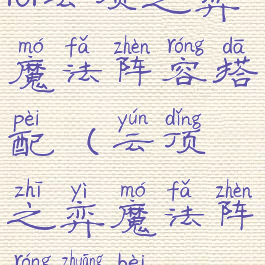 mó fǎ zhèn róng dā
魔法阵容搭
pèi yún dǐng
配（云顶
zhī yì mó fǎ zhèn
之弈魔法阵
róng zhuāng bèi